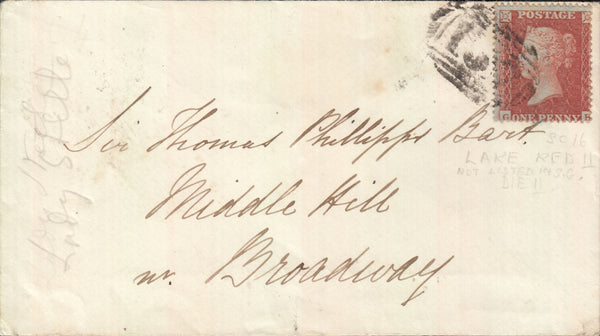 POSTAGE
ONE PENNY
Sir Thomas Phillipps Bart.
Middle Hill
nr. Broadway
SG16
LAKE RED II
NOT LISTED IN S.G.
DIE II
Lady